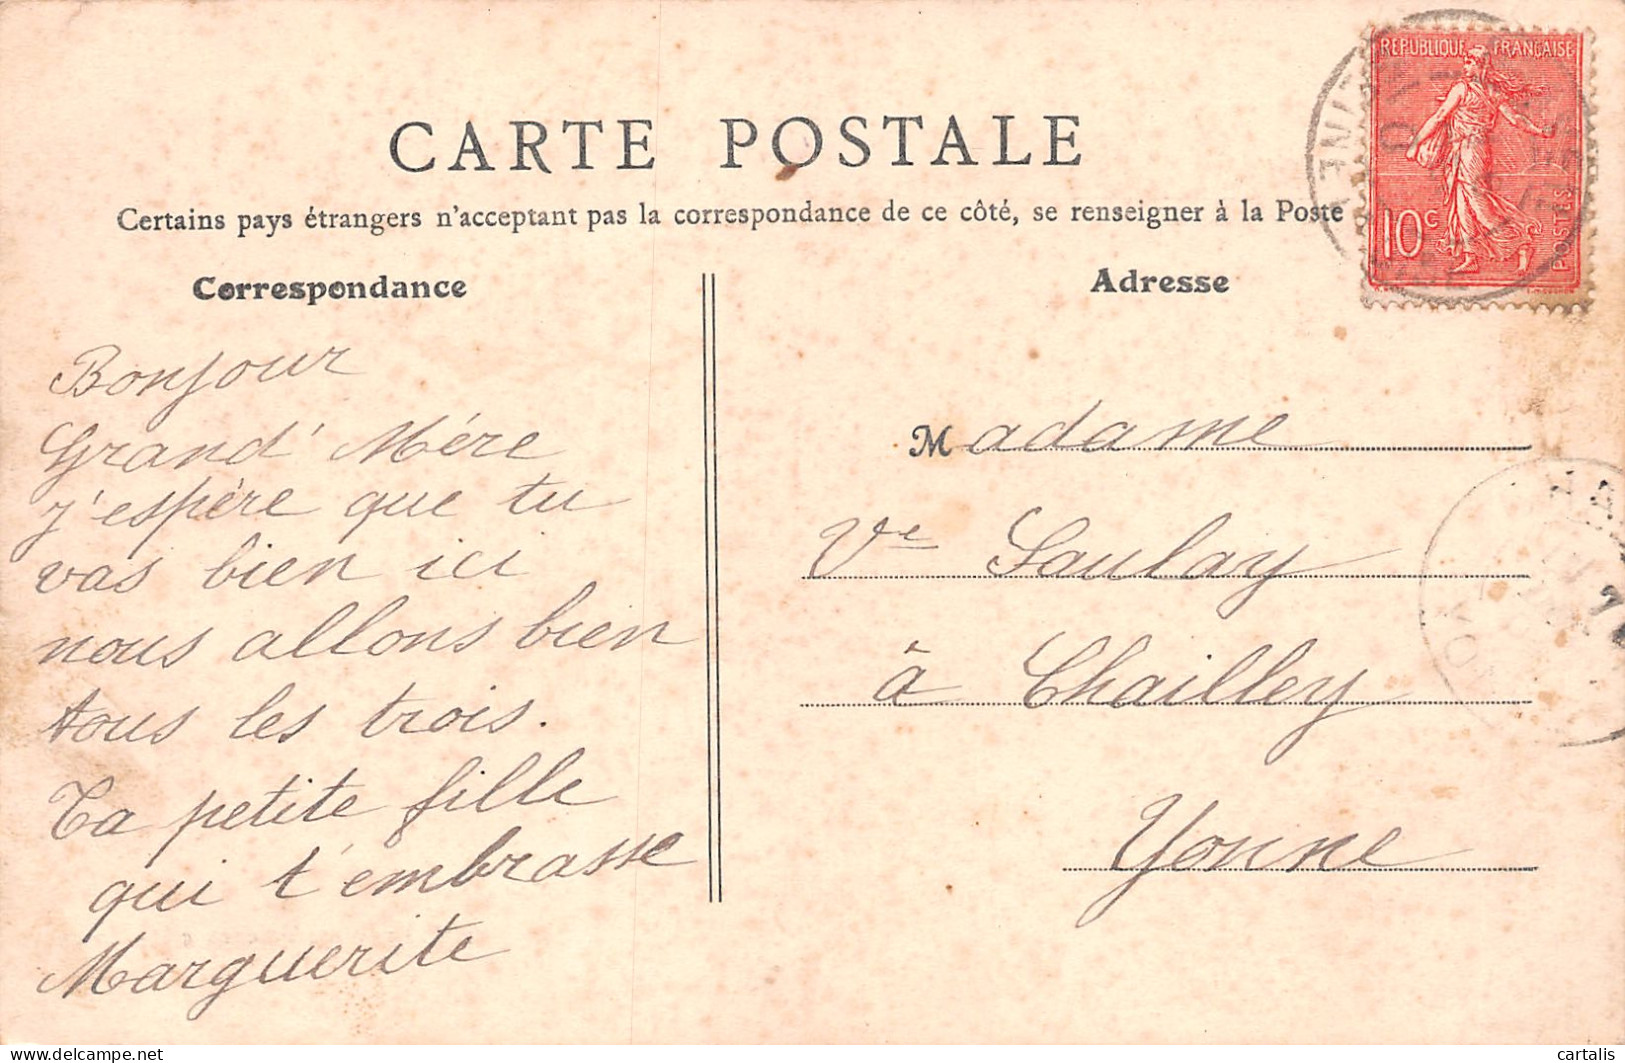 REPUBLIQUE FRANÇAISE
10c
POSTES
CARTE POSTALE
Certains pays étrangers n'acceptant pas la correspondance de ce côté, se renseigner à la Poste
Correspondance
Bonjour
Grand' Mére
j'espère que tu
vas bien ici
nous allons bien
tous les trois.
Ta petite fille
qui t'embrasse
Marguerite
Adresse
Madame
Ve Saulay
à Chailley
Yonne
www.delcampe.net
cartalis